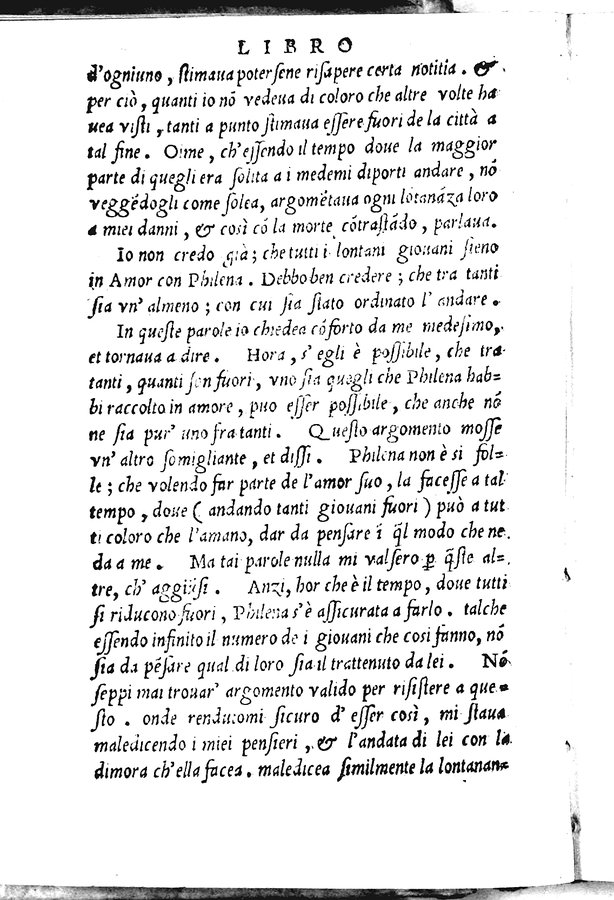 LIBRO
d'ogniuno, stimaua potersene risapere certa notitia. &
per ciò, quanti io nõ vedeua di coloro che altre volte ha
uea visti, tanti a punto stimaua essere fuori de la città a
tal fine. Oime, ch'essendo il tempo doue la maggior
parte di quegli era solita a i medemi diporti andare, nõ
veggẽdogli come solea, argomẽtaua ogni lotanãza loro
a miei danni, & così cõ la morte cõtrastãdo, parlaua.
Io non credo già; che tutti i lontani giouani sieno
in Amor con Philena. Debbo ben credere; che tra tanti
sia vn' almeno; con cui sia stato ordinato l' andare.
In queste parole io chiedea cõforto da me medesimo,
et tornaua a dire. Hora, s' egli è possibile, che tra
tanti, quanti son fuori, vno sia quegli che Philena hab=
bi raccolto in amore, puo esser possibile, che anche nõ
ne sia pur' uno fra tanti. Questo argomento mosse
vn' altro somigliante, et dissi. Philena non è si fol=
le; che volendo far parte de l'amor suo, la facesse a tal
tempo, doue (andando tanti giouani fuori) può a tut
ti coloro che l'amano, dar da pensare ĩ q̃l modo che ne
da a me. Ma tai parole nulla mi valsero ꝑ q̃ste al=
tre, ch' aggiũsi. Anzi, hor che è il tempo, doue tutti
si riducono fuori, Philena s'è assicurata a farlo. talche
essendo infinito il numero de i giouani che cosi fanno, nõ
sia da pẽsare qual di loro sia il trattenuto da lei. Nõ
seppi mai trouar' argomento valido per risistere a que=
sto. onde rendutomi sicuro d' esser così, mi staua
maledicendo i miei pensieri, & l'andata di lei con la
dimora ch'ella facea. maledicea similmente la lontanan=